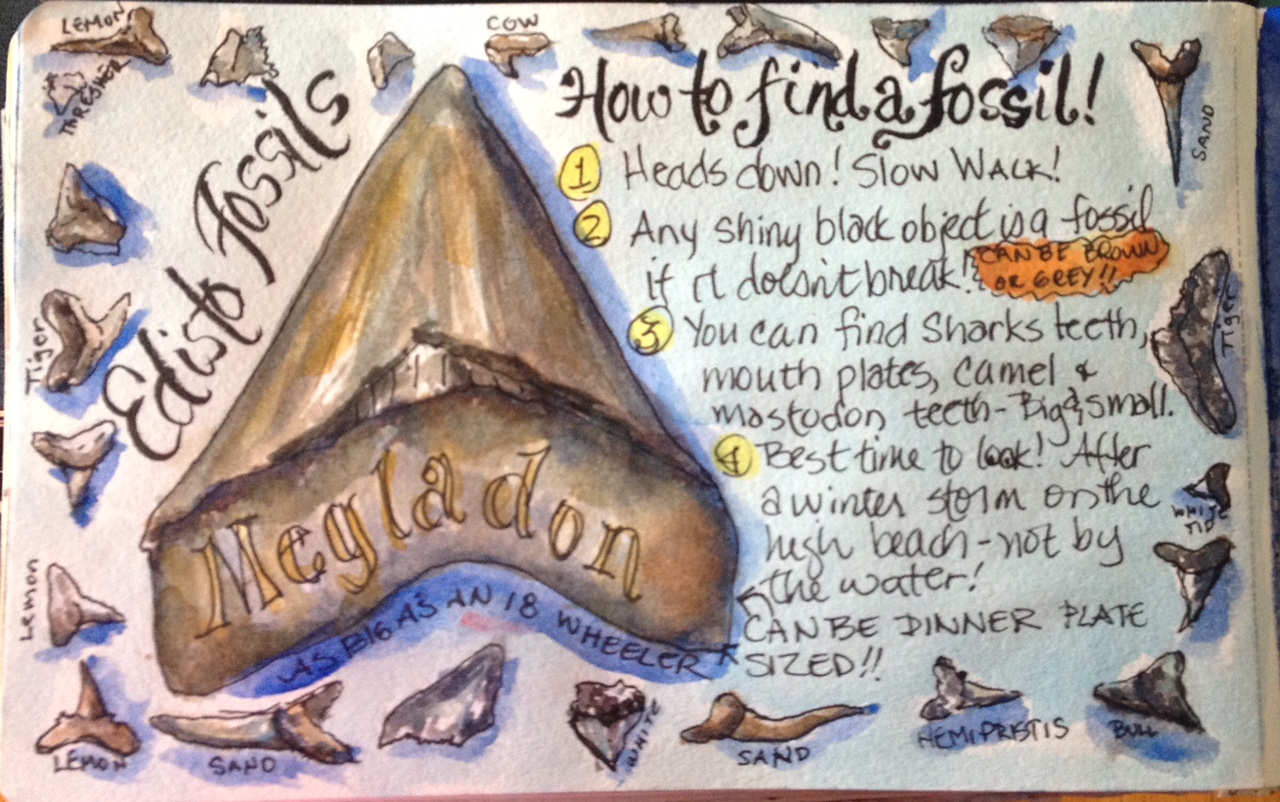 LEMON
THRESHER
COW
SAND
Edisto Fossils
How to find a fossil!
1 Heads down! Slow WALK!
2 Any shiny black object is a fossil
if it doesn't break!
CAN BE BROWN
OR GREY!!
3 You can find Sharks teeth,
mouth plates, Camel &
mastodon teeth - Big & small.
4 Best time to look! After
a winter storm on the
high beach - not by
the water!
CAN BE DINNER PLATE
SIZED!!
Megladon
AS BIG AS AN 18 WHEELER
Tiger
Tiger
WHITE
TIP
Lemon
LEMON
SAND
WHITE
SAND
HEMIPRISTIS
BULL